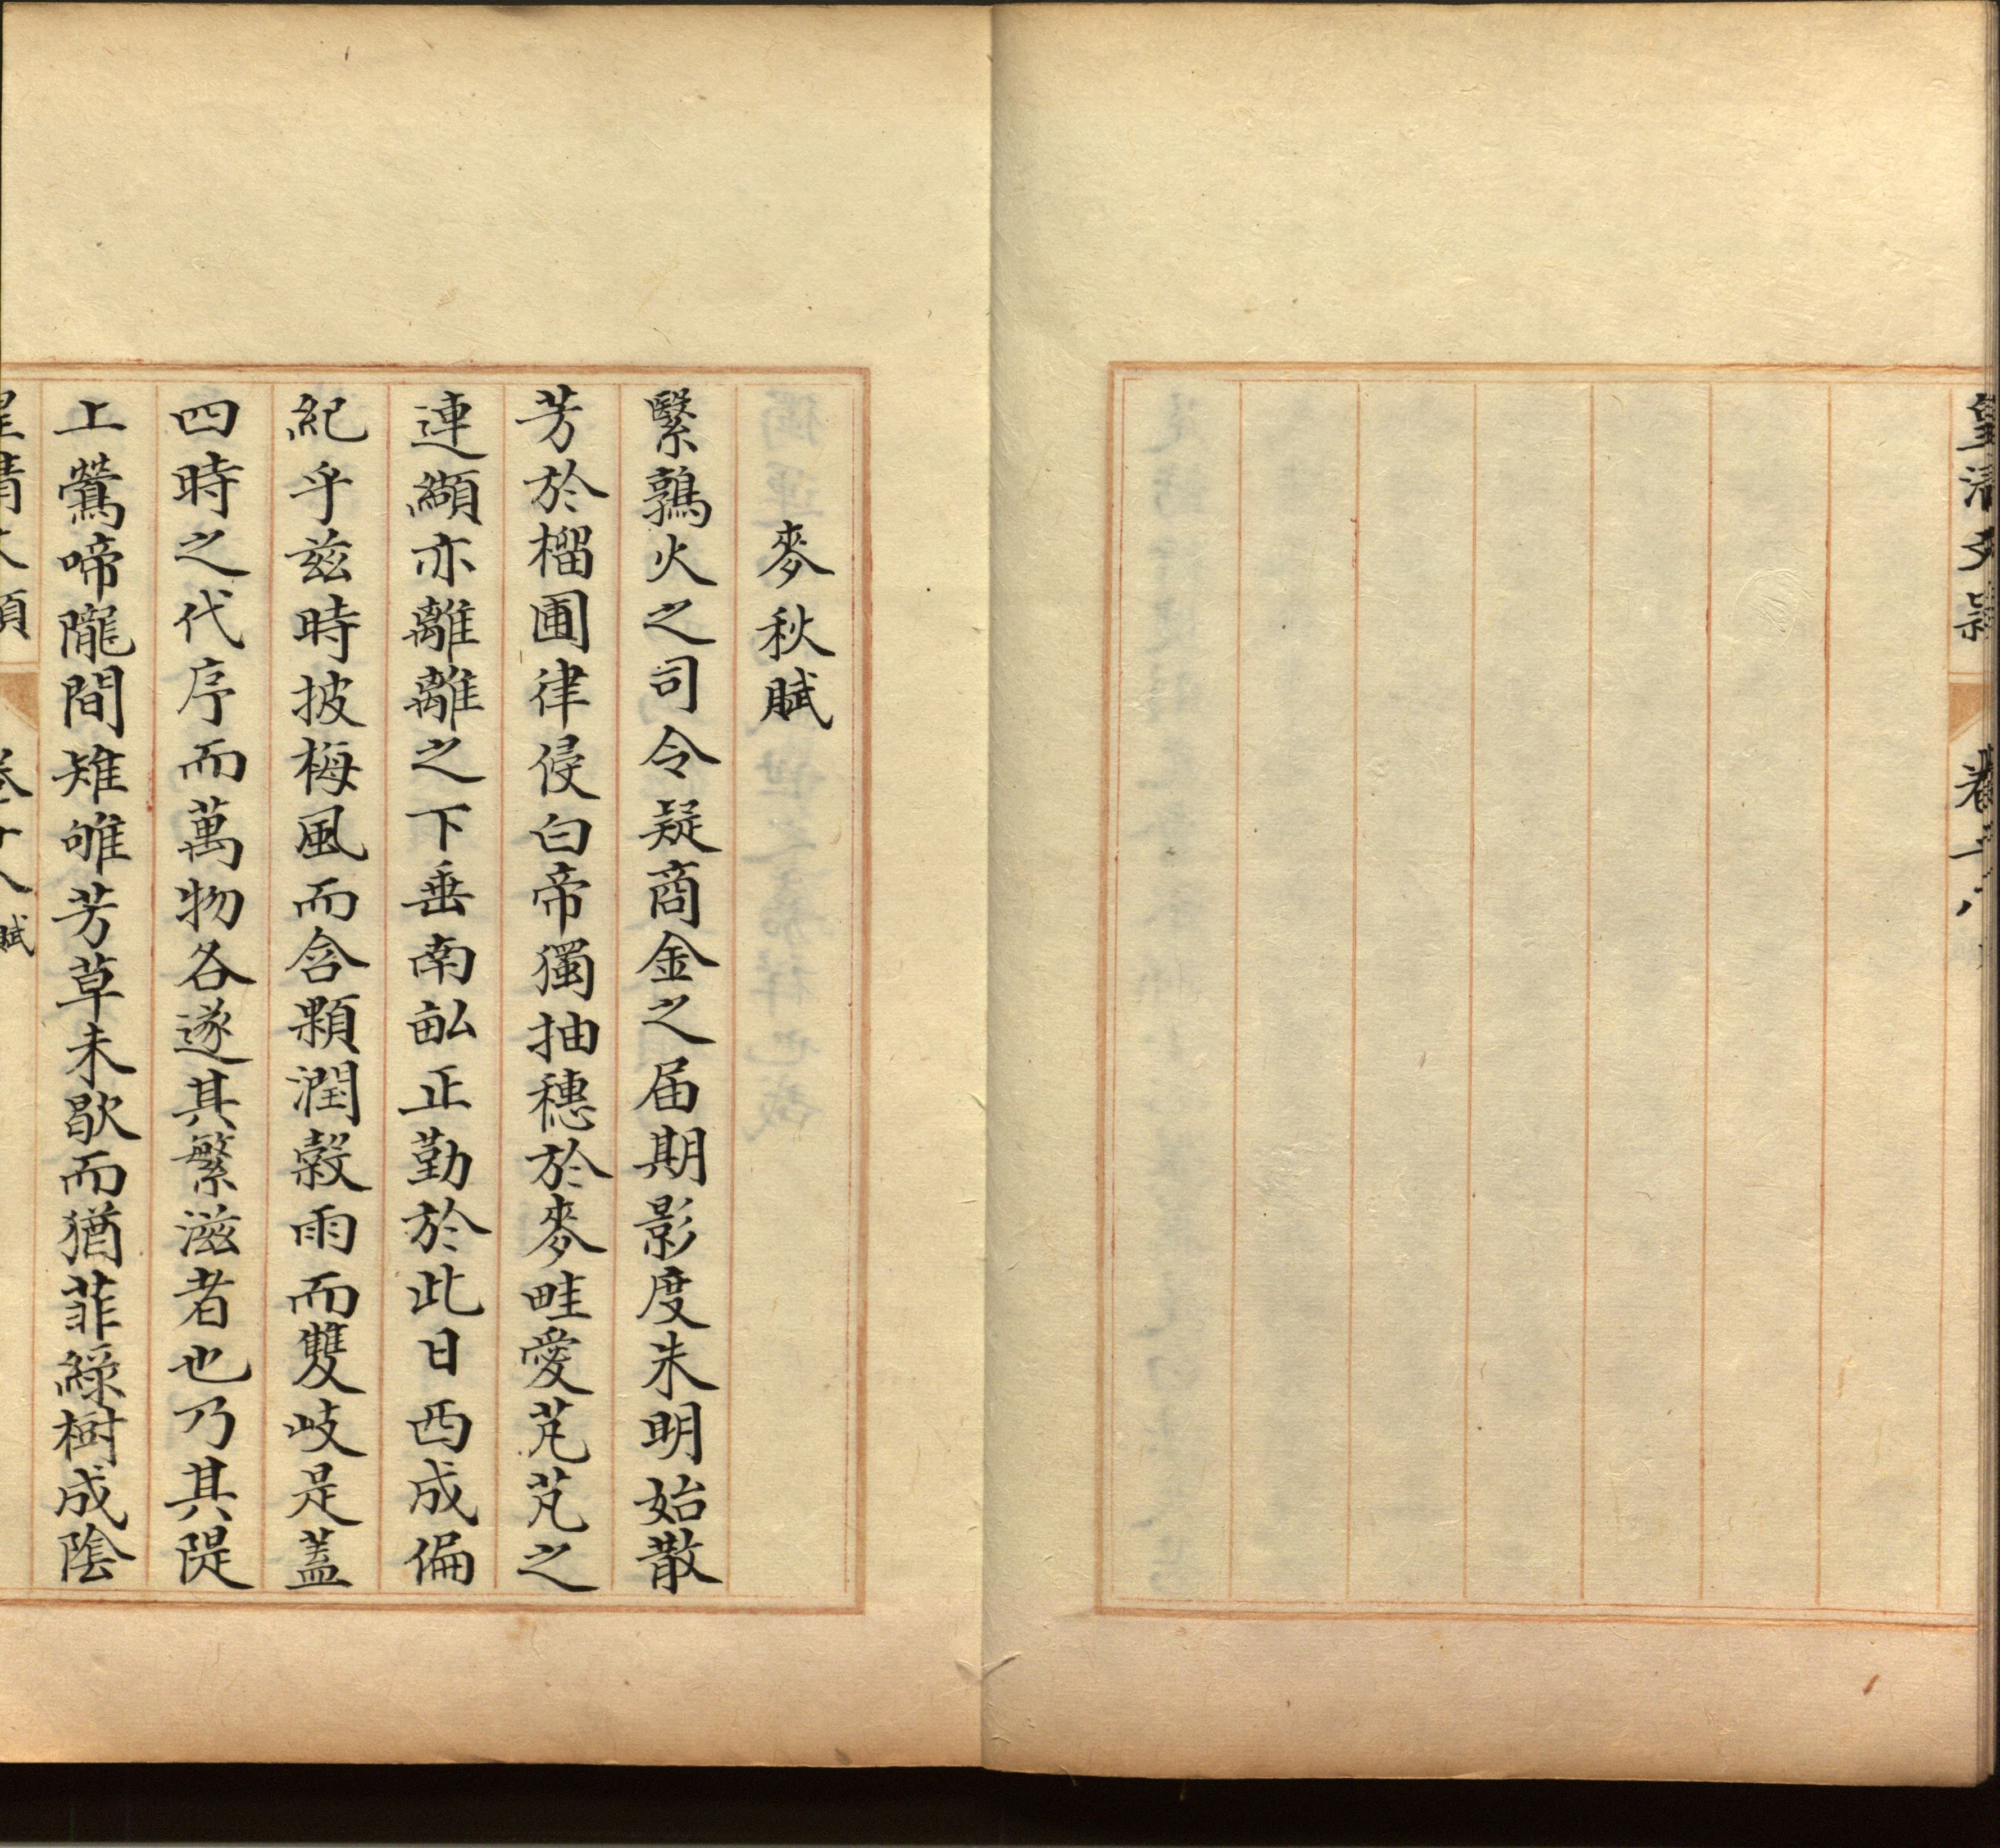 皇清文穎 卷十八
麥秋賦
緊鶉火之司令疑商金之届期影度朱明始散
芳於榴圃律侵白帝獨抽穗於麥畦愛芃芃之
連纈亦離離之下垂南畆正勤於此日西成偏
紀乎兹時披梅風而含顆潤穀雨而雙岐是蓋
四時之代序而萬物各遂其繁滋者也乃其隄
上鶯啼隴間雉雊芳草未歇而猶菲綠樹成陰
皇清文穎 卷十八 賦